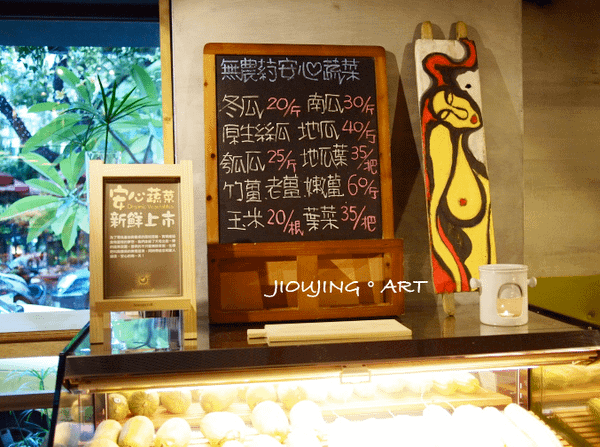 無農葯安心♡蔬菜
冬瓜20/斤 南瓜30/斤
原生絲瓜 地瓜40/斤
瓠瓜25/斤 地瓜葉35/把
竹薑老薑.嫩薑60/斤
玉米20/根葉菜35/把
安心蔬菜
Organic Vegetables
新鮮上市
JIOUJING ° ART